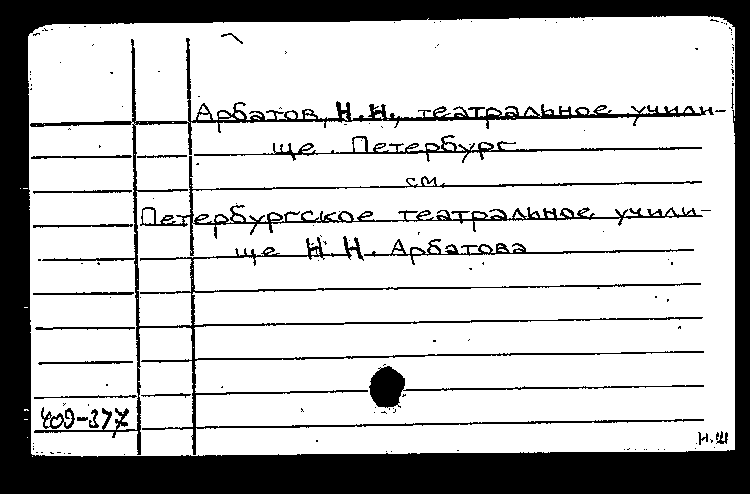 Арбатов, Н.Н., театральное учили-
ще. Петербург
см.
Петербургское театральное учили-
ще Н.Н. Арбатова
409-377
Н.Ш